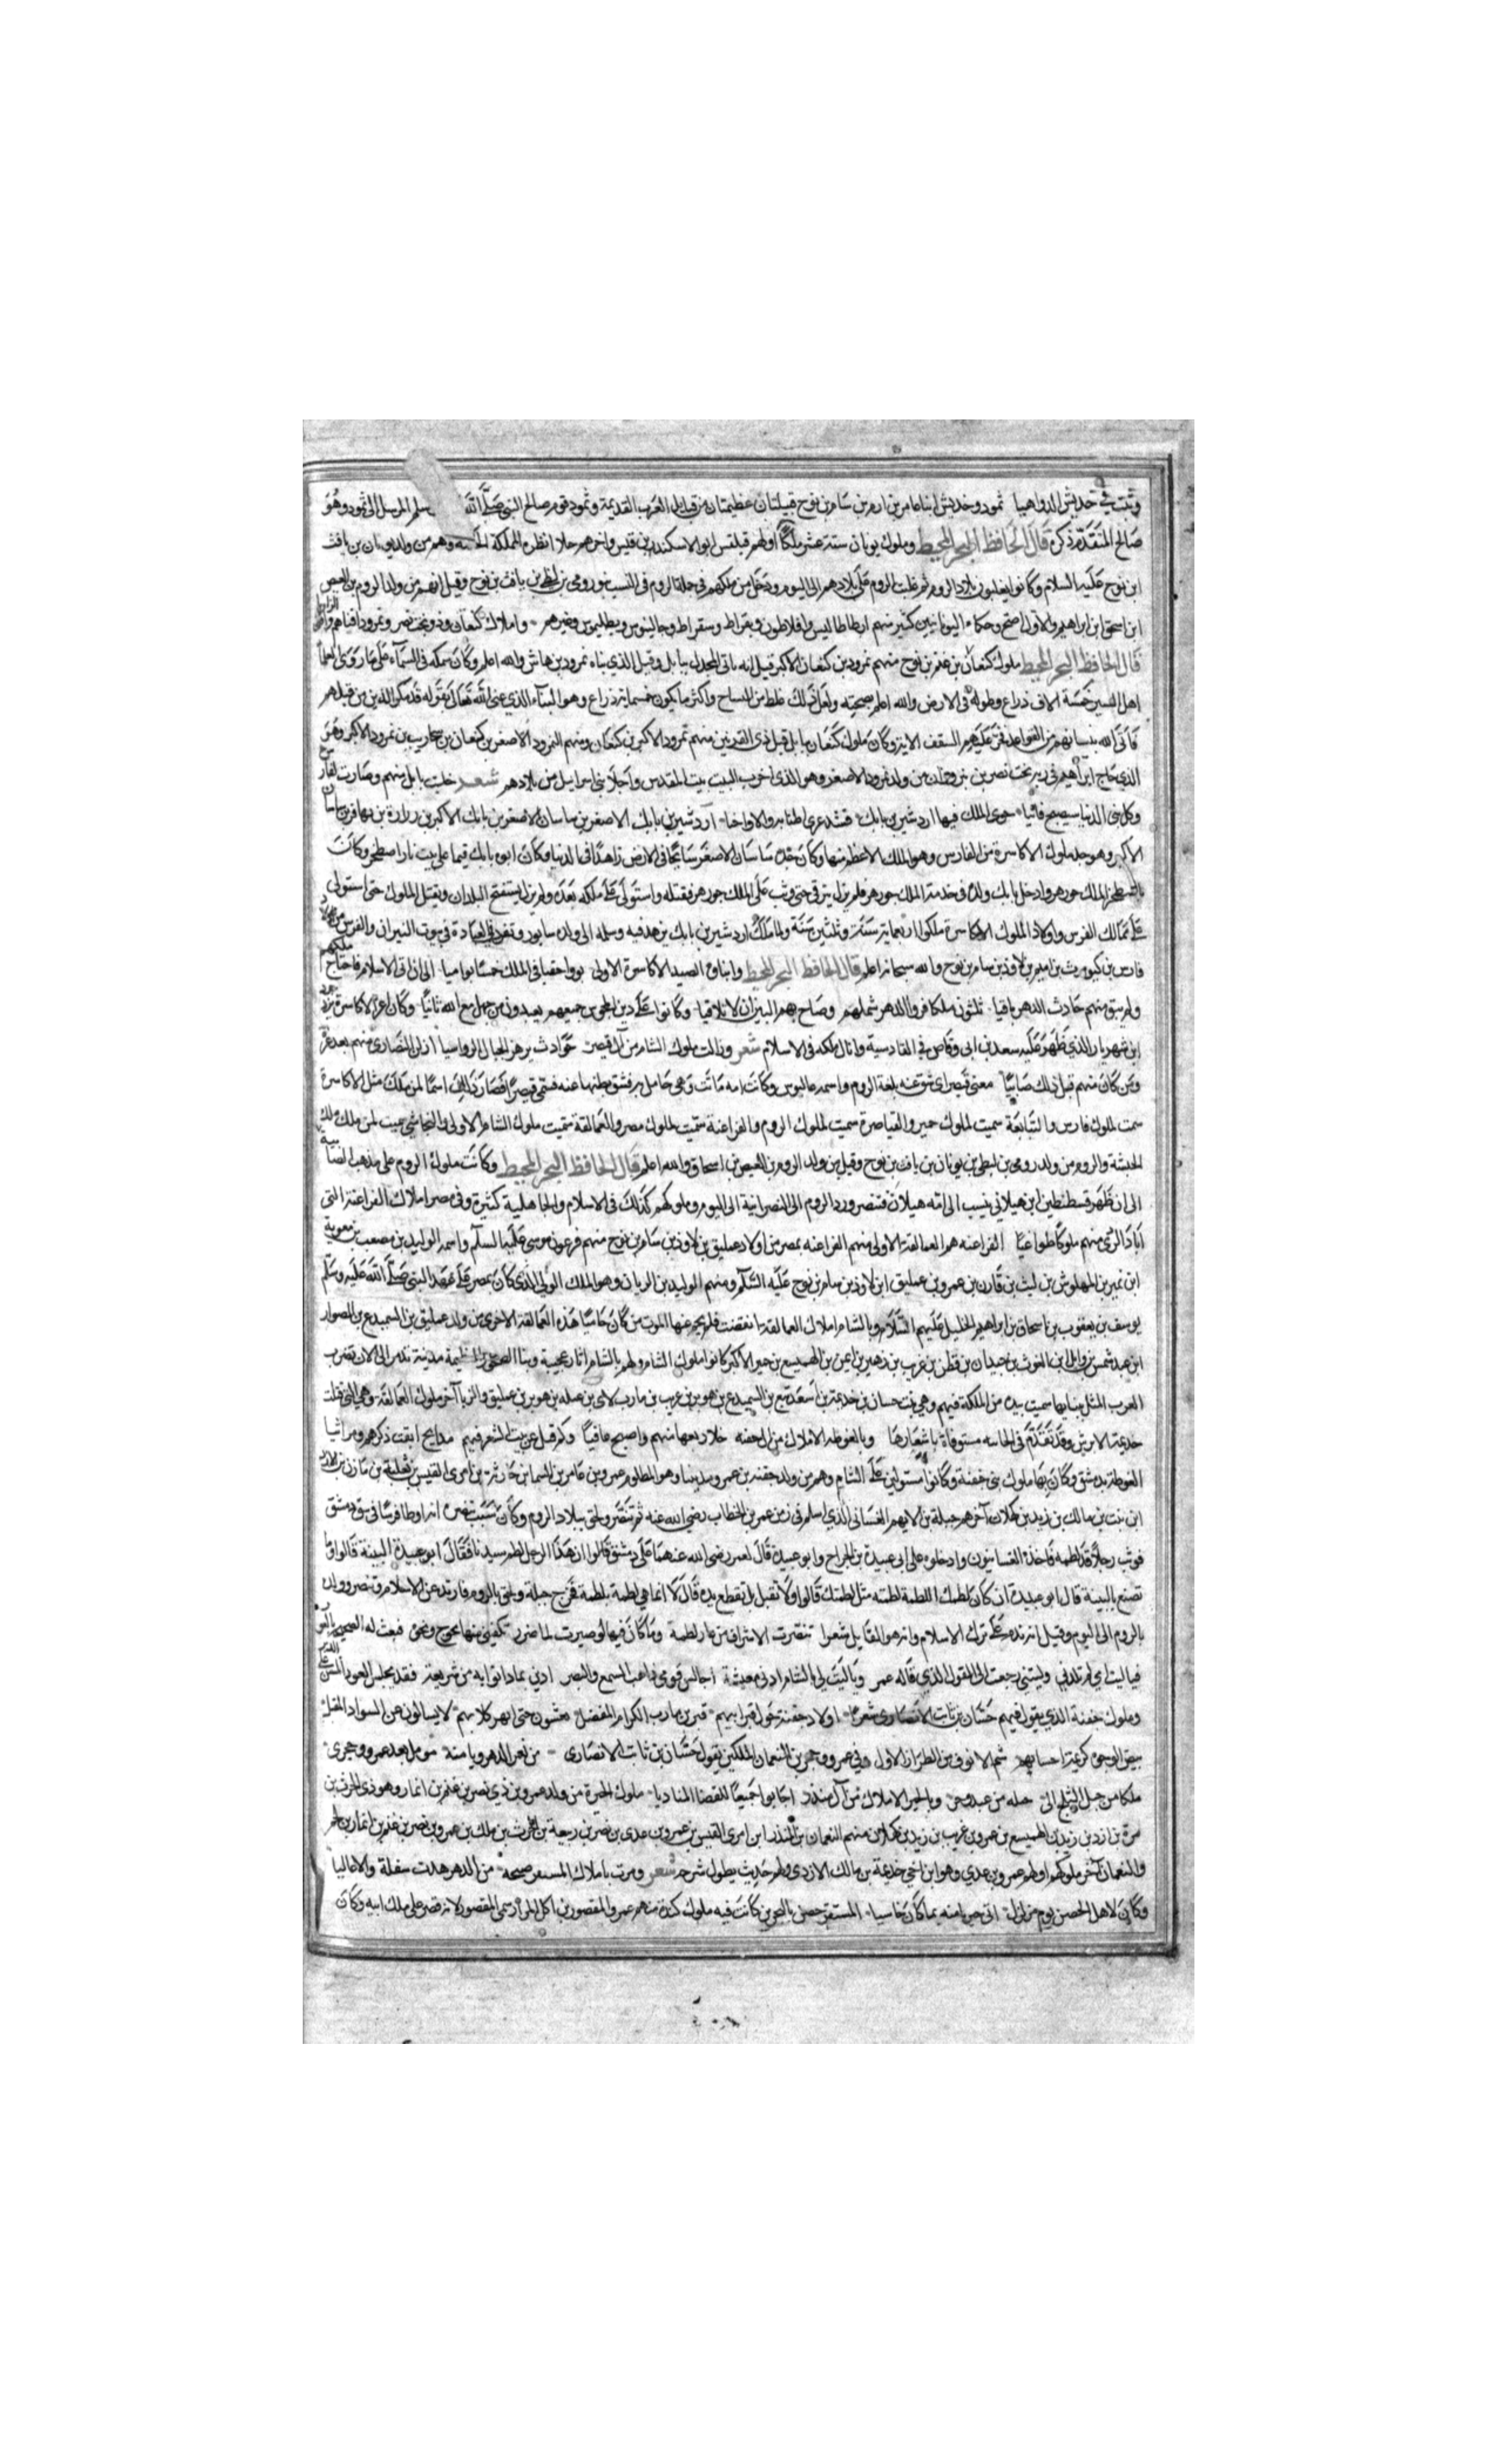 وثبت في جديش الدواهيا ثمود وجديش ابنا عامر بن ارم بن سام بن نوح قبيلتان عظيمتان من قبائل العرب القديمة وثمود قوم صالح النبي صلى الله سلم المرسل الى ثمود وهو
صالح المتقدم ذكره قال الحافظ البحر المحيط وملوك يونان ستة عشر ملكا اولهم فيلقس ابو الاسكندر بن قيس واخرهم وهم من ولد يونان بن يافث
ابن نوح عليه السلام وكانوا يغلبون بلاد الروم ثم غلبت الروم على بلادهم الى اليوم ودخل من ملكهم في جملة الروم في النسب رومي بن لبطي بن يافث بن نوح وقيل انهم من ولد الروم بن العيص
ابن اسحق بن ابراهيم والاول اصح وحكماء اليونانيين كثير منهم ارسطاطاليس وافلاطون وبقراط وسقراط وجالينوس وبطليموس وغيرهم واملاك كنعان وذو بخت نصر ونمرود افناهم
قال الحافظ البحر المحيط ملوك كنعان بن نوح منهم نمرود بن كنعان الاكبر قيل انه باني المجدل ببابل وقيل الذي بناه نمرود بن هاش والله اعلم وكان سمكه في السماء على ما روى العلماء
اهل السير خمسة الاف ذراع وطوله في الارض والله اعلم بصحيته ولعل ذلك غلط من النساخ واكثر ما يكون خمسماية ذراع وهو البناء الذي عنى الله تعالى بقوله قد مكر الذين من قبلهم
فاتى الله بنيانهم من القواعد فخر عليهم السقف الاية وكان ملوك كنعان بابل قبل ذي القرنين منهم نمرود الاكبر بن كنعان ومنهم النمرود الاصغر بن كنعان بن سحاريب بن نمرود الاكبر وهو
الذي حاج ابراهيم في ربه بخت نصر بن من ولد نمرود الاصغر وهو الذي اخرب البيت بيت المقدس واجلا بني اسرايل من بلادهم شعر خلت بابل منهم وصارت
وكل بني الدنيا سيصبح فانيا حوى الملك فيها اردشير بن بابك فشد عرى اطنابه والاواخيا اردشير بن بابك الاصغر بن ساسان الاصغر بن بابك الاكبر بن
الاكبر وهو جد ملوك الاكاسرة من الفارس وهو الملك الاعظم منها وكان جده ساسان الاصغر سايحا في الارض زاهدا في الدنيا وكان ابوه بابك قيما على بيت نار اصطخر وكانت
باصطخر الملك جوزهر وادخل بابك ولده في خدمة الملك جوزهر فلم يزل يترقى حتى وثب على الملك جوزهر فقتله واستولى على ملكه بعده ولم يزل يستفتح البلدان ويقتل الملوك حتى استولى
على ممالك الفرس واولاد الملوك الاكاسرة ملكوا اربعماية سنة وثلثين سنة ولما ملك اردشير بن بابك وسلمه الى ولده سابور وتفرد في العبادة في بيوت النيران والفرس
فارس بن كيومرث بن اميم بن لاوذ بن سام بن نوح والله سبحانه اعلم قال الحافظ البحر المحيط وابناؤه الصيد الاكاسرة الاولى الى ان اتى الاسلام فاجتاح
ولم يبق منهم حادث الدهر باقيا ثلثون ملكا فرق الدهر شملهم وصاح بهم البين ان لا تلاقيا وكانوا على دين المجوس جميعهم يعبدون من جهل مع الله ثانيا وكان اخر الاكاسرة
ابن شهريار الذي ظهر عليه سعد بن ابي وقاص في القادسية وازال ملكه في الاسلام شعر وزالت ملوك الشام من آل قيصر حوادث
ومن كان منهم قبل ذلك صابيا معنى قيصر اي شق عنه بلغة الروم واسمه غاليوس وكانت امه ماتت وهي حامل به فشق بطنها عنه فسمي قيصر فصار ذلك اسما لمن ملك مثل الاكاسرة
سمت لملوك فارس والتبابعة سميت لملوك حمير والقياصرة سميت لملوك الروم والفراعنة سميت لملوك مصر والعمالقة سميت ملوك الشام الاولى والنجاشي سميت لمن ملك
الحبشة والروم من ولد رومي بن لبطي بن يونان بن يافث بن نوح وقيل من ولد الروم بن العيص بن اسحاق والله اعلم قال الحافظ البحر المحيط وكانت ملوك الروم على مذهب الصابية
الى ان ظهر قسطنطين ابن هيلاني ينسب الى امه هيلانة فتنصر ورد الروم الى النصرانية الى اليوم وملوكهم كذلك في الاسلام والجاهلية كثيرة وفي مصر املاك الفراعنة التي
اباد الردى منهم ملوكا طواغيا الفراعنة هم العمالقة الاولى منهم الفراعنه بمصر من اولاد عمليق بن لاوذ بن سام بن نوح منهم فرعون موسى عليه السلام واسمه الوليد بن مصعب بن معوية
ابن نمير بن الهلوش بن ليث بن قاران بن عمرو بن عمليق ابن لاوذ بن سام بن نوح عليه السلام ومنهم الوليد بن الريان وهو الملك الولي الذي كان بمصر على عهد النبي صلى الله عليه وسلم
يوسف بن يعقوب بن اسحاق بن ابراهيم الخليل عليهم السلام وبالشام املاك العمالقة انقضت فلم يحم عنها الموت من كان حاميا هذه العمالقة الاخرى من ولد عمليق بن السميدع بن الصوار
ابن عبد شمس بن وايل بن الغوث بن جيدان بن قطن بن عريب بن زهير بن ايمن بن الهميسع بن حمير الاكبر كانوا ملوك الشام ولهم بالشام اثار عجيبة وبنا مدينة تدمر الى الان تضرب
العرب المثل ببنايها من الملكة فيهم وهي بنت حسان بن اسعد تبع بن السميدع بن هوبر بن عريب بن مارب بن هوبر بن عمليق والزبا آخر ملوك العمالقة وهي التي قتلت
جذيمة الابرش وقد تقدم مستوفاة باشعارها وبالغوطة الاملاك من ال جفنه خلا ربعها منهم واصبح عافيا وكم قيل من بيت الشعر فيهم مدايح ابقت ذكرهم ومراثيا
الغوطة بدمشق وكان بها ملوك بني جفنة وكانوا مستولين على الشام وهم من ولد جفنه بن عمرو بن عامر بن السما بن حارثة بن امرى القيس بن ثعلبة بن مازن بن الازد
ابن نبت بن مالك بن زيد بن كهلان آخرهم جبلة بن الايهم الغساني الذي اسلم في زمن عمر بن الخطاب رضي الله عنه ثم تنصر ولحق ببلاد الروم وكان سبب تنصره انه اوطا فرسا في سوق دمشق
فوثب رجلا قد لطمه فاخذه الغسانيون وادخلوه على ابي عبيدة بن الجراح وابو عبيدة قال لعمر رضي الله عنهما على دمشق قالوا ان هذا الرجل لطم سيدنا فقال ابو عبيدة البينة قالوا وما
تصنع بالبينة قال ابو عبيدة ان كان لطمك اللطمة لطمته مثل لطمتك قالوا ولا تقبل بل تقطع يده قال لا انما هي لطمة بلطمة فخرج جبلة ولحق بالروم فارتد عن الاسلام وتنصر وولده
بالروم الى اليوم وقيل انه ندم على ترك الاسلام وانه هو القايل شعرا تنصرت الاشراف من عار لطمة وما كان فيها لو صبرت لها ضرر تكنفني منها لجوج ونخوة فبعت له العين الصحيحة بالعور
فيا ليت امي لم تلدني وليتني رجعت الى القول الذي قاله عمر ويا ليت لي بالشام ادنى معيشة اجالس قومي ذاهب السمع والبصر ادين بما دانوا به من شريعة
وملوك جفنة الذي يقول فيهم حسان بن ثابت الانصاري شعرا اولاد جفنة حول قبر ابيهم قبر بن مارب الكرام المفضل يغشون حتى ما تهر كلابهم لا يسالون عن السواد المقبل
بيض الوجوه كريمة احسابهم شم الانوف من الطراز الاول وفي عمرو وحجر بن النعمان الملكين يقول حسان بن ثابت الانصاري من يغر الدهر ويامنه من قبل بعد عمرو وحجر
ملكا من جبل الثلج الى وبالحيرة الاملاك من آل منذر اجابوا جميعا للقضا المناديا ملوك الحيرة من ولد عمرو بن ذي نصر بن غنم بن انمار
مرة بن ازد بن زيد بن الهميسع بن عمرو بن عريب بن زيد بن كهلان منهم النعمان بن المنذر ابن امرى القيس بن عمرو بن عدي بن نصر بن ربيعة بن الحرث بن ملك بن عمرو بن نصر
والنعمان آخر ملوكهم اولهم عمرو بن عدي وهو ابن اخي جذيمة بن مالك الازدي ولهم حديث يطول شرحه شعر ومرت باملاك المسقر صيحة من الدهر هدت سفله والاعاليا
وكان لاهل الحصن يوم زلزلة حصن بالبحرين كانت فيه ملوك كندة منهم عمرو المقصور بن اكل المرار سمي المقصور لانه قصر على ملك ابيه وكان